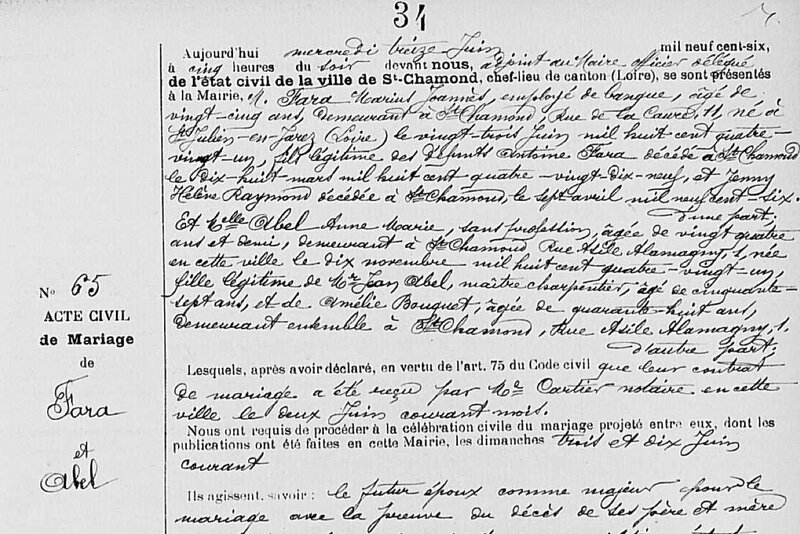 34
Aujourd'hui mercredi treize Juin mil neuf cent-six,
à cinq heures du soir devant nous, adjoint au Maire officier délégué
de l'état civil de la ville de St-Chamond, chef-lieu de canton (Loire), se sont présentés
à la Mairie, M. Fara Marius Joannès, employé de banque, âgé de
vingt-cinq ans, demeurant à St Chamond, Rue de la Caure, 11, né à
St Julien-en-Jarez (Loire) le vingt-trois Juin mil huit cent quatre-
vingt-un, fils légitime des défunts Antoine Fara décédé à St Chamond
le dix-huit mars mil huit cent quatre-vingt-dix-neuf, et Jenny
Hélène Raymond décédée à St Chamond, le sept avril mil neuf cent-six.
d'une part;
Et Melle Abel Anne Marie, sans profession, âgée de vingt quatre
ans et demi, demeurant à St Chamond Rue Asile Alamagny, 1, née
en cette ville le dix novembre mil huit cent quatre-vingt-un,
fille légitime de Mr Jean Abel, maître charpentier, âgé de cinquante-
sept ans, et de Amélie Bouquet, âgée de quarante-huit ans,
demeurant ensemble à St Chamond, Rue Asile Alamagny, 1.
d'autre part;
No 65
ACTE CIVIL
de Mariage
de
Fara
et
Abel
Lesquels, après avoir déclaré, en vertu de l'art. 75 du Code civil que leur contrat
de mariage a été reçu par Me Cartier notaire en cette
ville le deux Juin courant mois.
Nous ont requis de procéder à la célébration civile du mariage projeté entre eux, dont les
publications ont été faites en cette Mairie, les dimanches trois et dix Juin
courant
Ils agissent, savoir : le futur époux comme majeur pour le
mariage avec la preuve du décès de ses père et mère